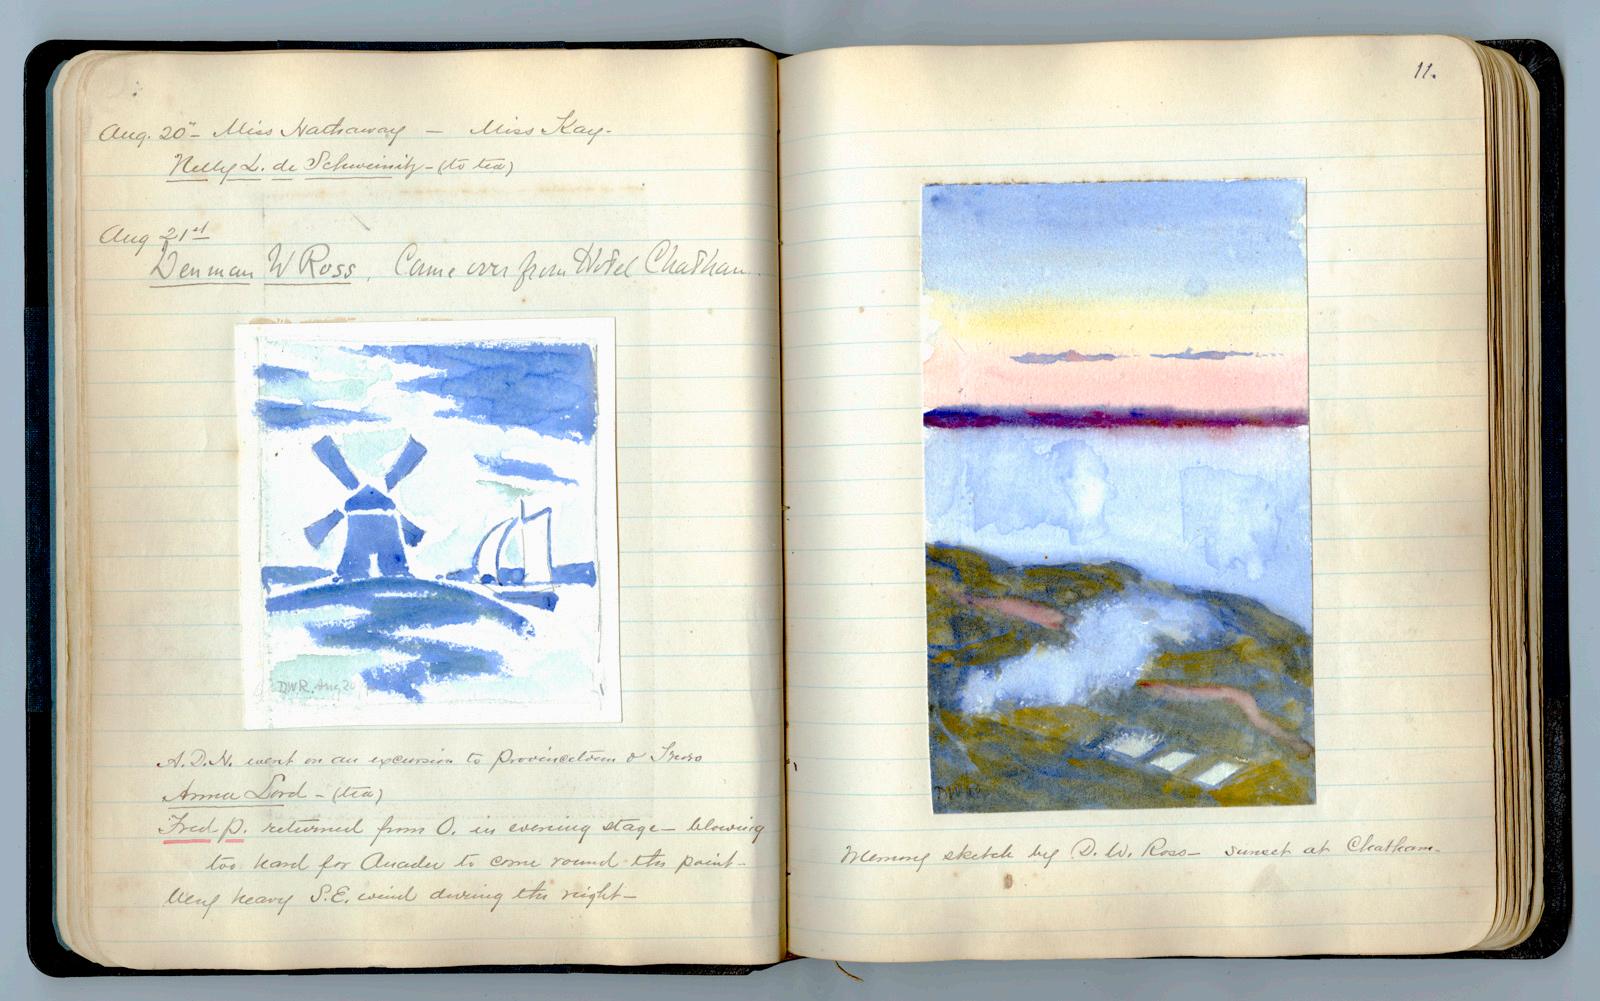 Aug. 20" – Miss Hathaway – Miss Kay.
Nelly L. de Schweinitz – (to tea)
Aug 21st
Denman W Ross, Came over from Hotel Chatham
D.W.R. Aug 20
A.D.H. went on an excursion to Provincetown & Truro
Anna Lord – (tea)
Fred P. returned from O. in evening stage – blowing
too hard for to come round the point –
Very heavy S.E. wind during the night –
11.
Memory sketch by D. W. Ross – sunset at Chatham.